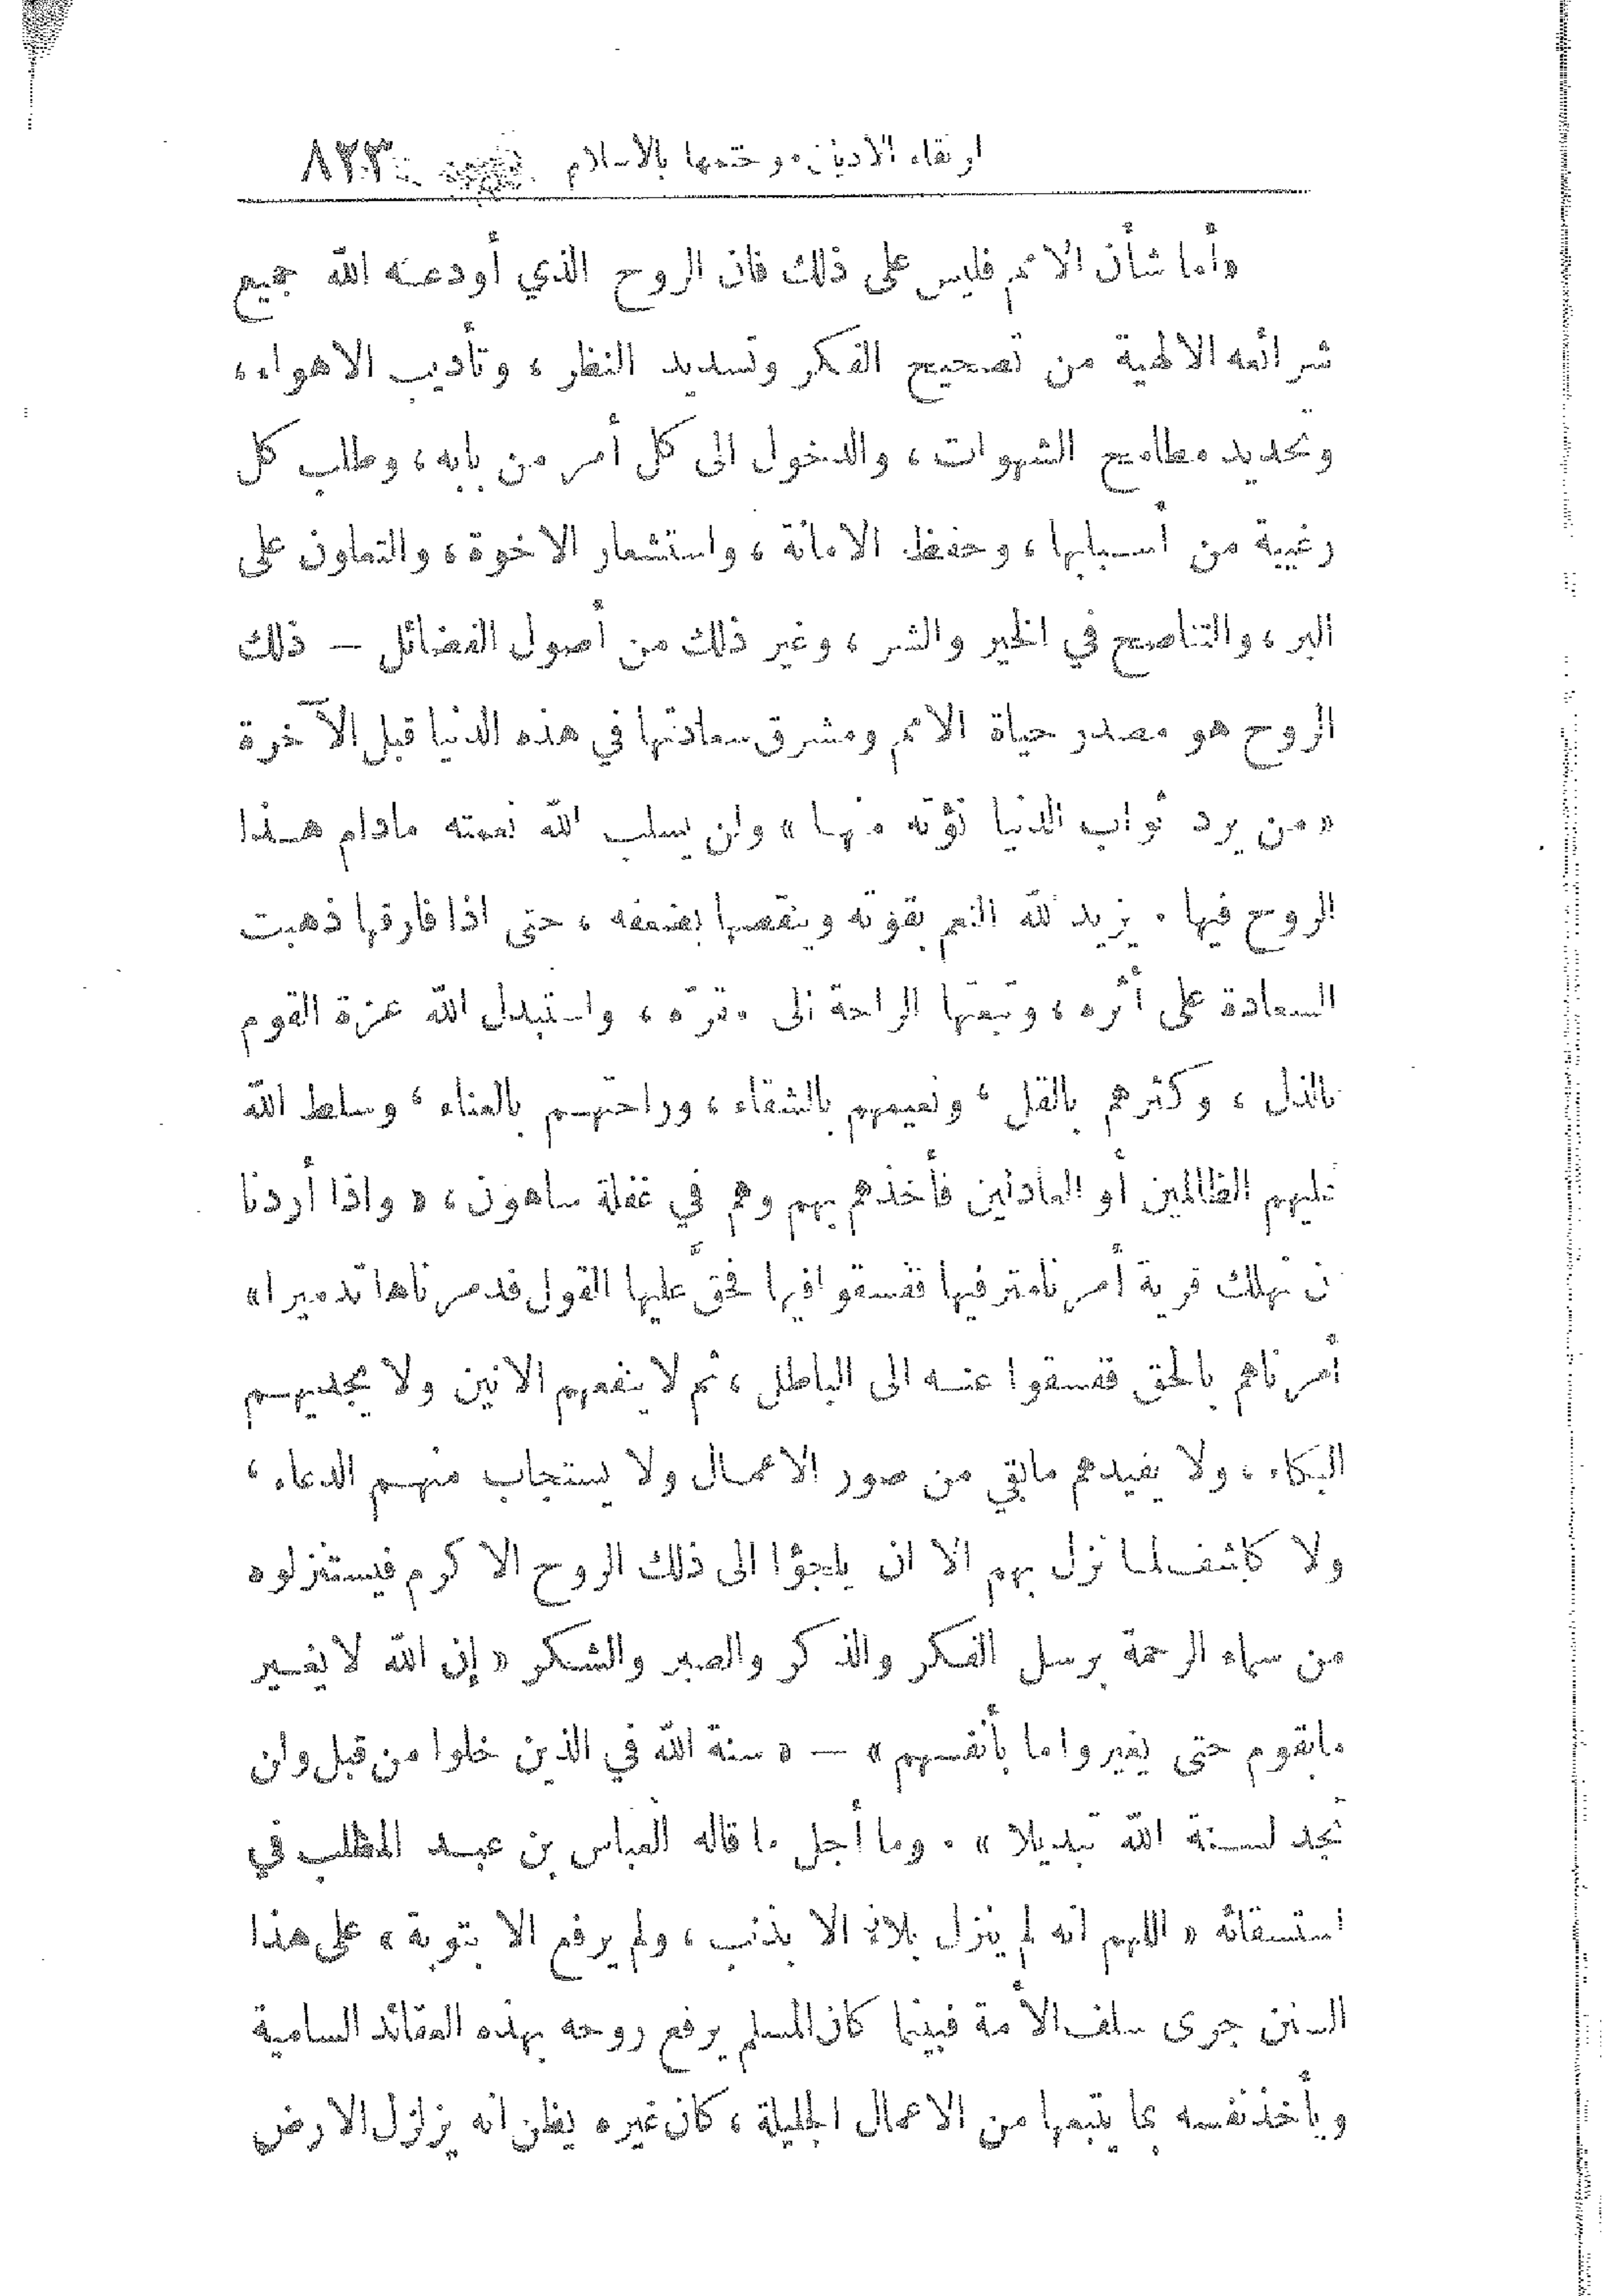 ارتقاء الاديان وختمها بالاسلام ٨٢٣
وأما شأن الامم فليس على ذلك فان الروح الذي أودعه الله جميع
شرائعه الالهية من تصحيح الفكر وتسديد النظر ، وتأديب الاهواء ،
وتحديد مطامح الشهوات ، والدخول الى كل أمر من بابه ، وطلب كل
رغيبة من أسبابها ، وحفظ الامانة ، واستشعار الاخوة ، والتعاون على
البر ، والتناصح في الخير والشر ، وغير ذلك من أصول الفضائل – ذلك
الروح هو مصدر حياة الامم ومشرق سعادتها في هذه الدنيا قبل الآخرة
« من يرد ثواب الدنيا نؤته منها » ولن يسلب الله نعمته مادام هـذا
الروح فيها . يزيد الله النعم بقوته وينقصها بضعفه ، حتى اذا فارقها ذهبت
السعادة على أثره ، وتبعتها الراحة الى مقره ، واستبدل الله عزة القوم
بالذل ، وكثرهم بالقل ، ونعيمهم بالشقاء ، وراحتهـم بالعناء ، وسلط الله
عليهم الظالمين أو العادلين فأخذهم بهم وهم في غفلة ساهون ، « واذا أردنا
أن نهلك قرية أمرنا مترفيها ففسقوا فيها فحقّ عليها القول فدمرناها تدميرا »
أمرناهم بالحق ففسقوا عنـه الى الباطل ، ثم لا ينفعهم الانين ولا يجديهـم
البكاء ، ولا يفيدهم مابقي من صور الاعمـال ولا يستجاب منهـم الدعاء ،
ولا كاشف لمـا نزل بهم الا ان يلجؤا الى ذلك الروح الاكرم فيستنزلوه
من سماء الرحمة برسل الفـكر والذكر والصبر والشـكر « إن الله لا يغـير
مابقوم حتى يغيروا ما بأنفـسهم » – « سنة الله في الذين خلوا من قبل ولن
تجد لسـنة الله تبديلا » . وما أجل ما قاله العباس بن عبـد المطلب في
استسقائه « اللهم انه لم ينزل بلاء الا بذنب ، ولم يرفع الا بتوبة » على هذا
السنن جرى سلف الأمة فبينما كان المسلم يرفع روحه بهذه العقائد السامية
ويأخذ نفسه بما يتبعها من الاعمال الجليلة ، كان غيره يظن انه يزلزل الارض